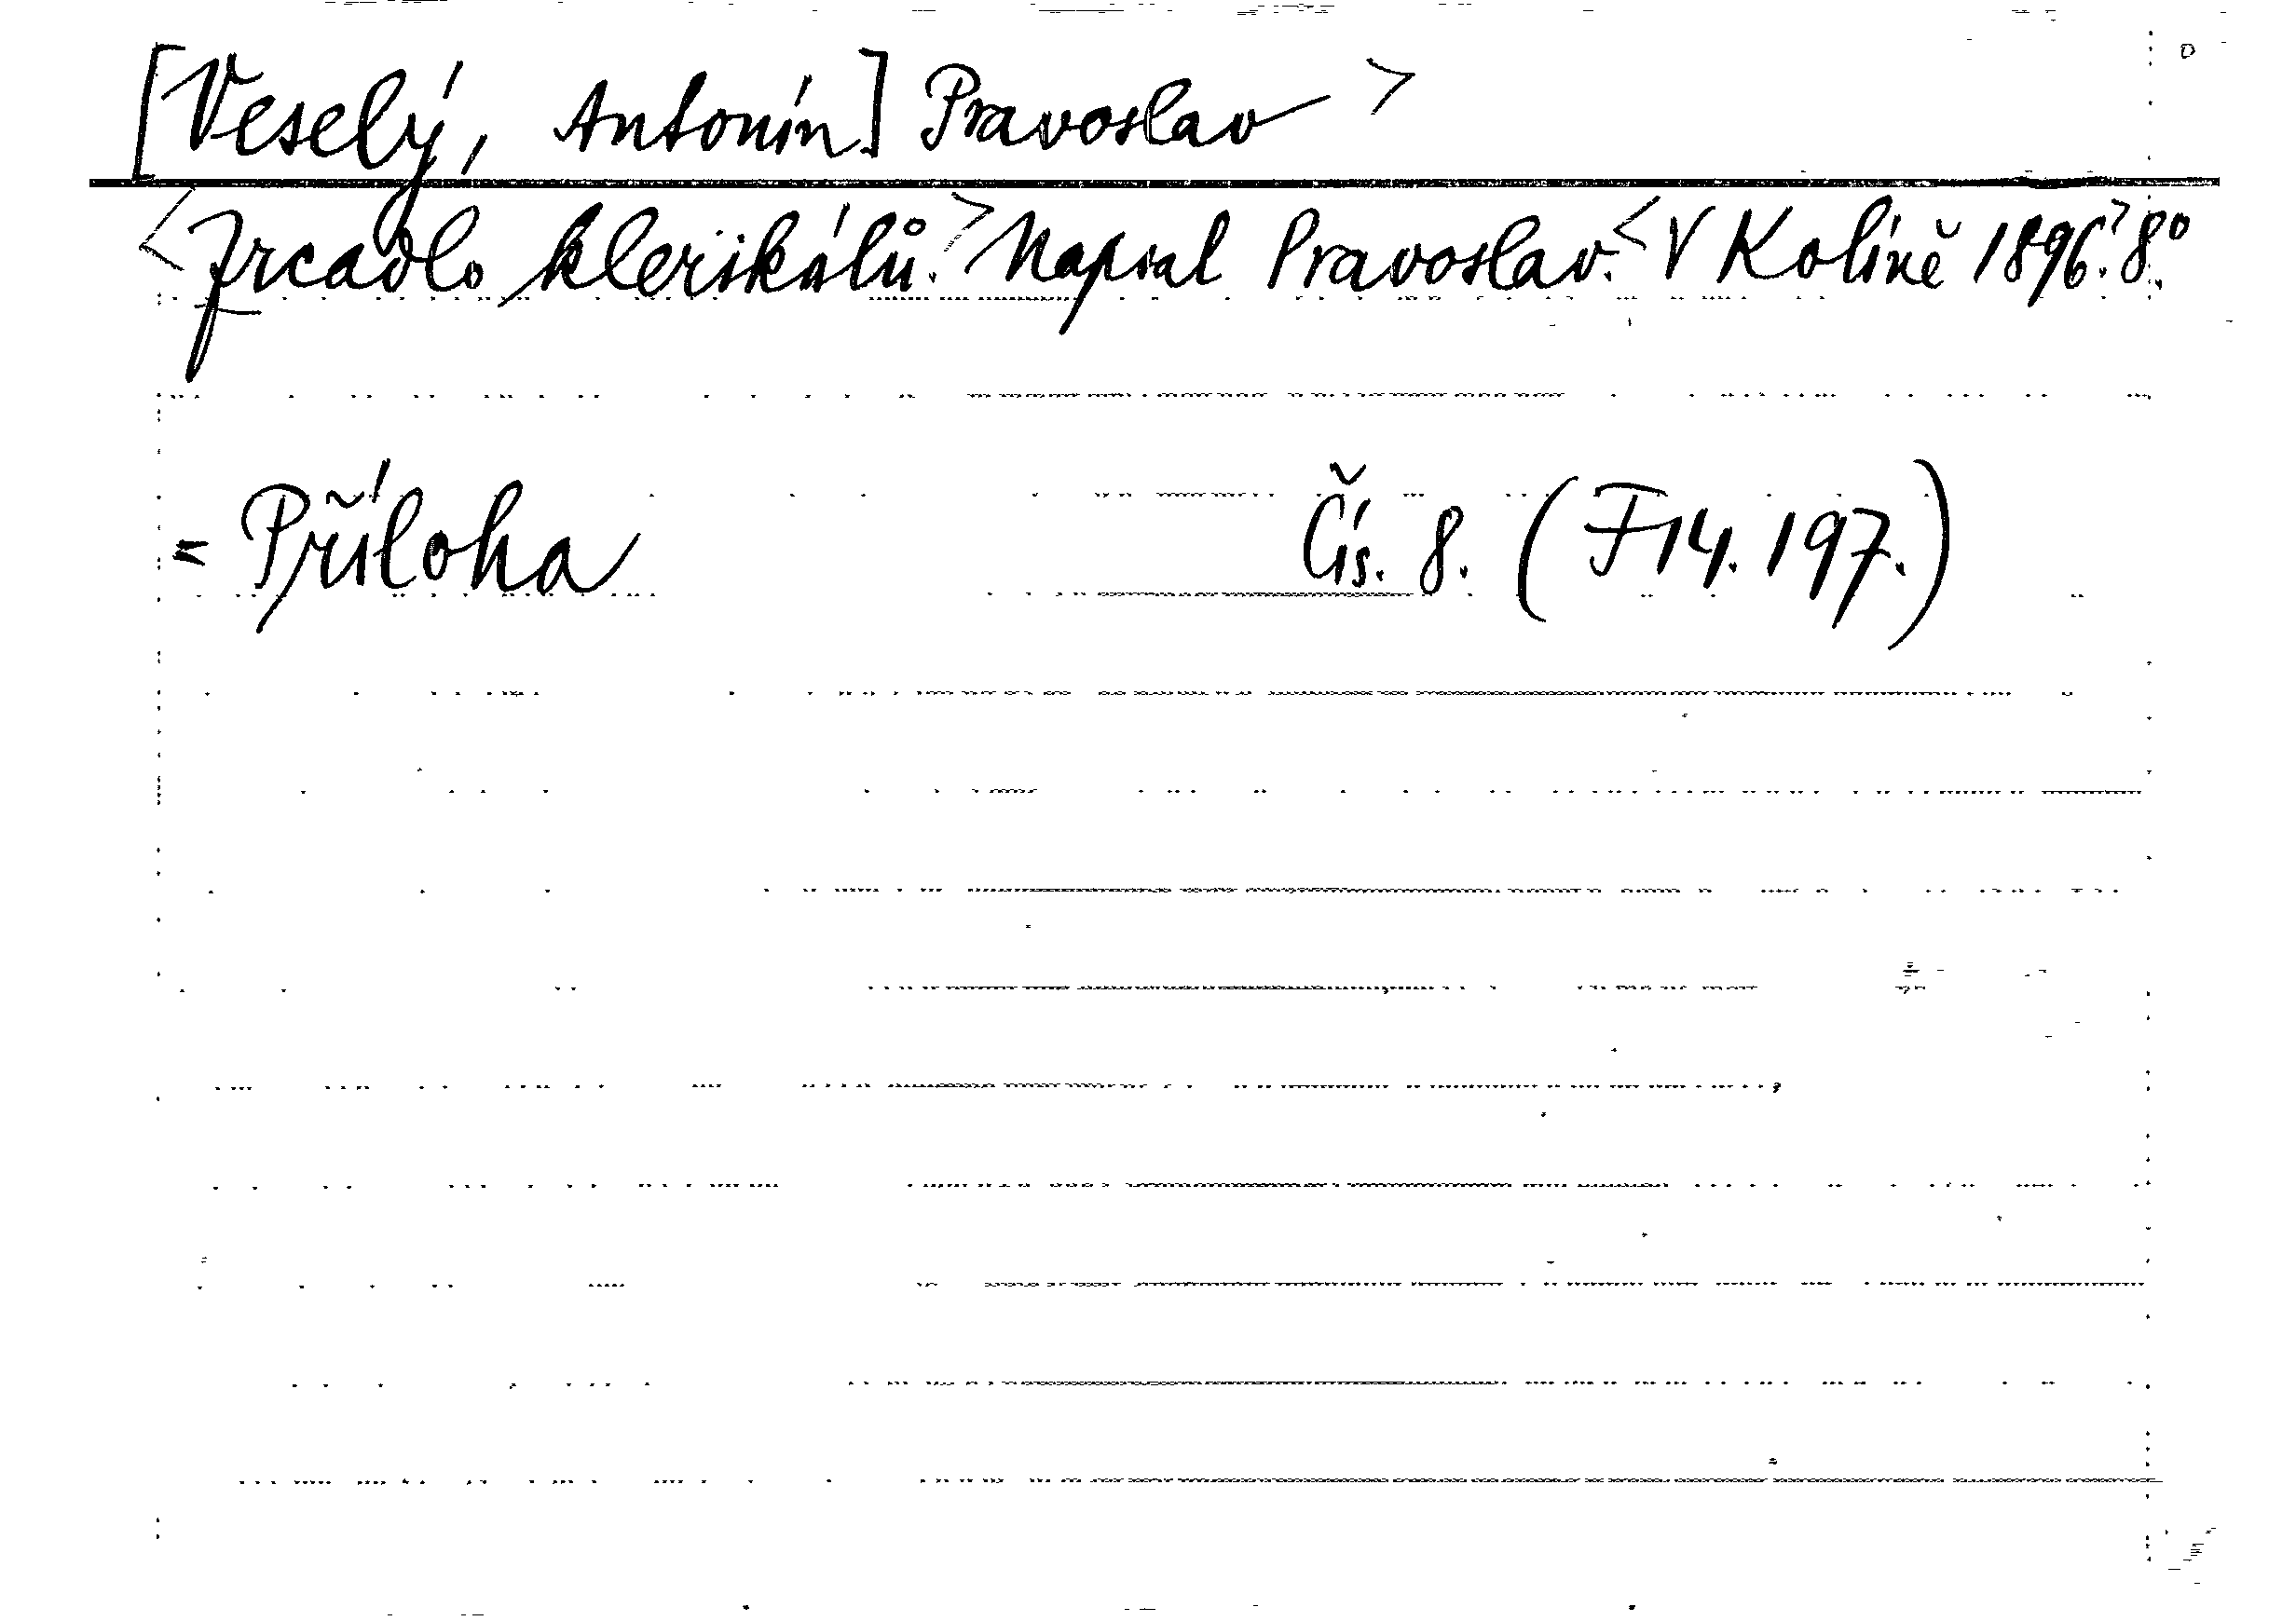 [Veselý, Antonín] Pravoslav >
<Zrcadlo klerikálů.> Napsal Pravoslav.< V Kolíně 1896.> 8.°
= Příloha Čís. 8. (F14.197.)